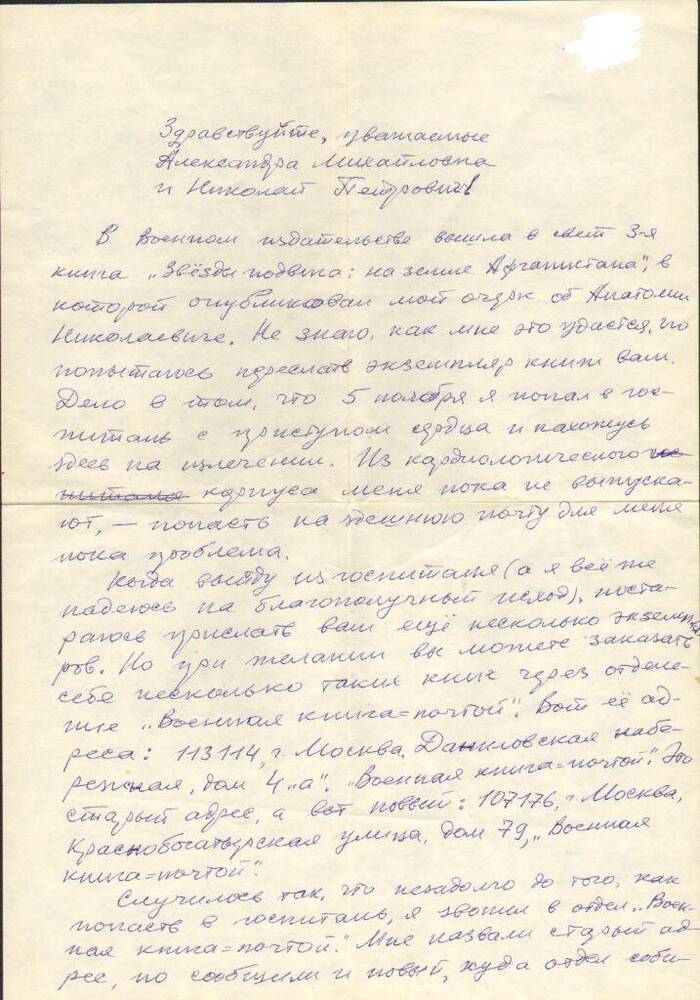 Здравствуйте, уважаемые
Александра Михайловна
и Николай Петрович!
В Военном издательстве вышла в свет 3-я
книга „Звёзды подвига: на земле Афганистана", в
которой опубликован мой очерк об Анатолии
Николаевиче. Не знаю, как мне это удастся, но
попытаюсь переслать экземпляр книги вам.
Дело в том, что 5 ноября я попал в гос-
питаль с приступом сердца и нахожусь
здесь на излечении. Из кардиологического гос-
питаля карпуса меня пока не выпуска-
ют, — попасть на здешнюю почту для меня
пока проблема.
Когда выйду из госпиталя (а я всё же
надеюсь на благополучный исход), поста-
раюсь прислать вам ещё несколько экземпля-
ров. Но при желании вы можете заказать
себе несколько таких книг через отделе-
ние „Военная книга=почтой". Вот её ад-
реса: 113114, г. Москва, Даниловская набе-
режная, дом 4 „а". „Военная книга=почтой". Это
старый адрес, а вот новый: 107176, г. Москва,
Краснобогатырская улица, дом 79, „Военная
книга=почтой".
Случилось так, что незадолго до того, как
попасть в госпиталь, я звонил в отдел „Воен-
ная книга=почтой." Мне назвали старый ад-
рес, но сообщили и новый, куда отдел соби-